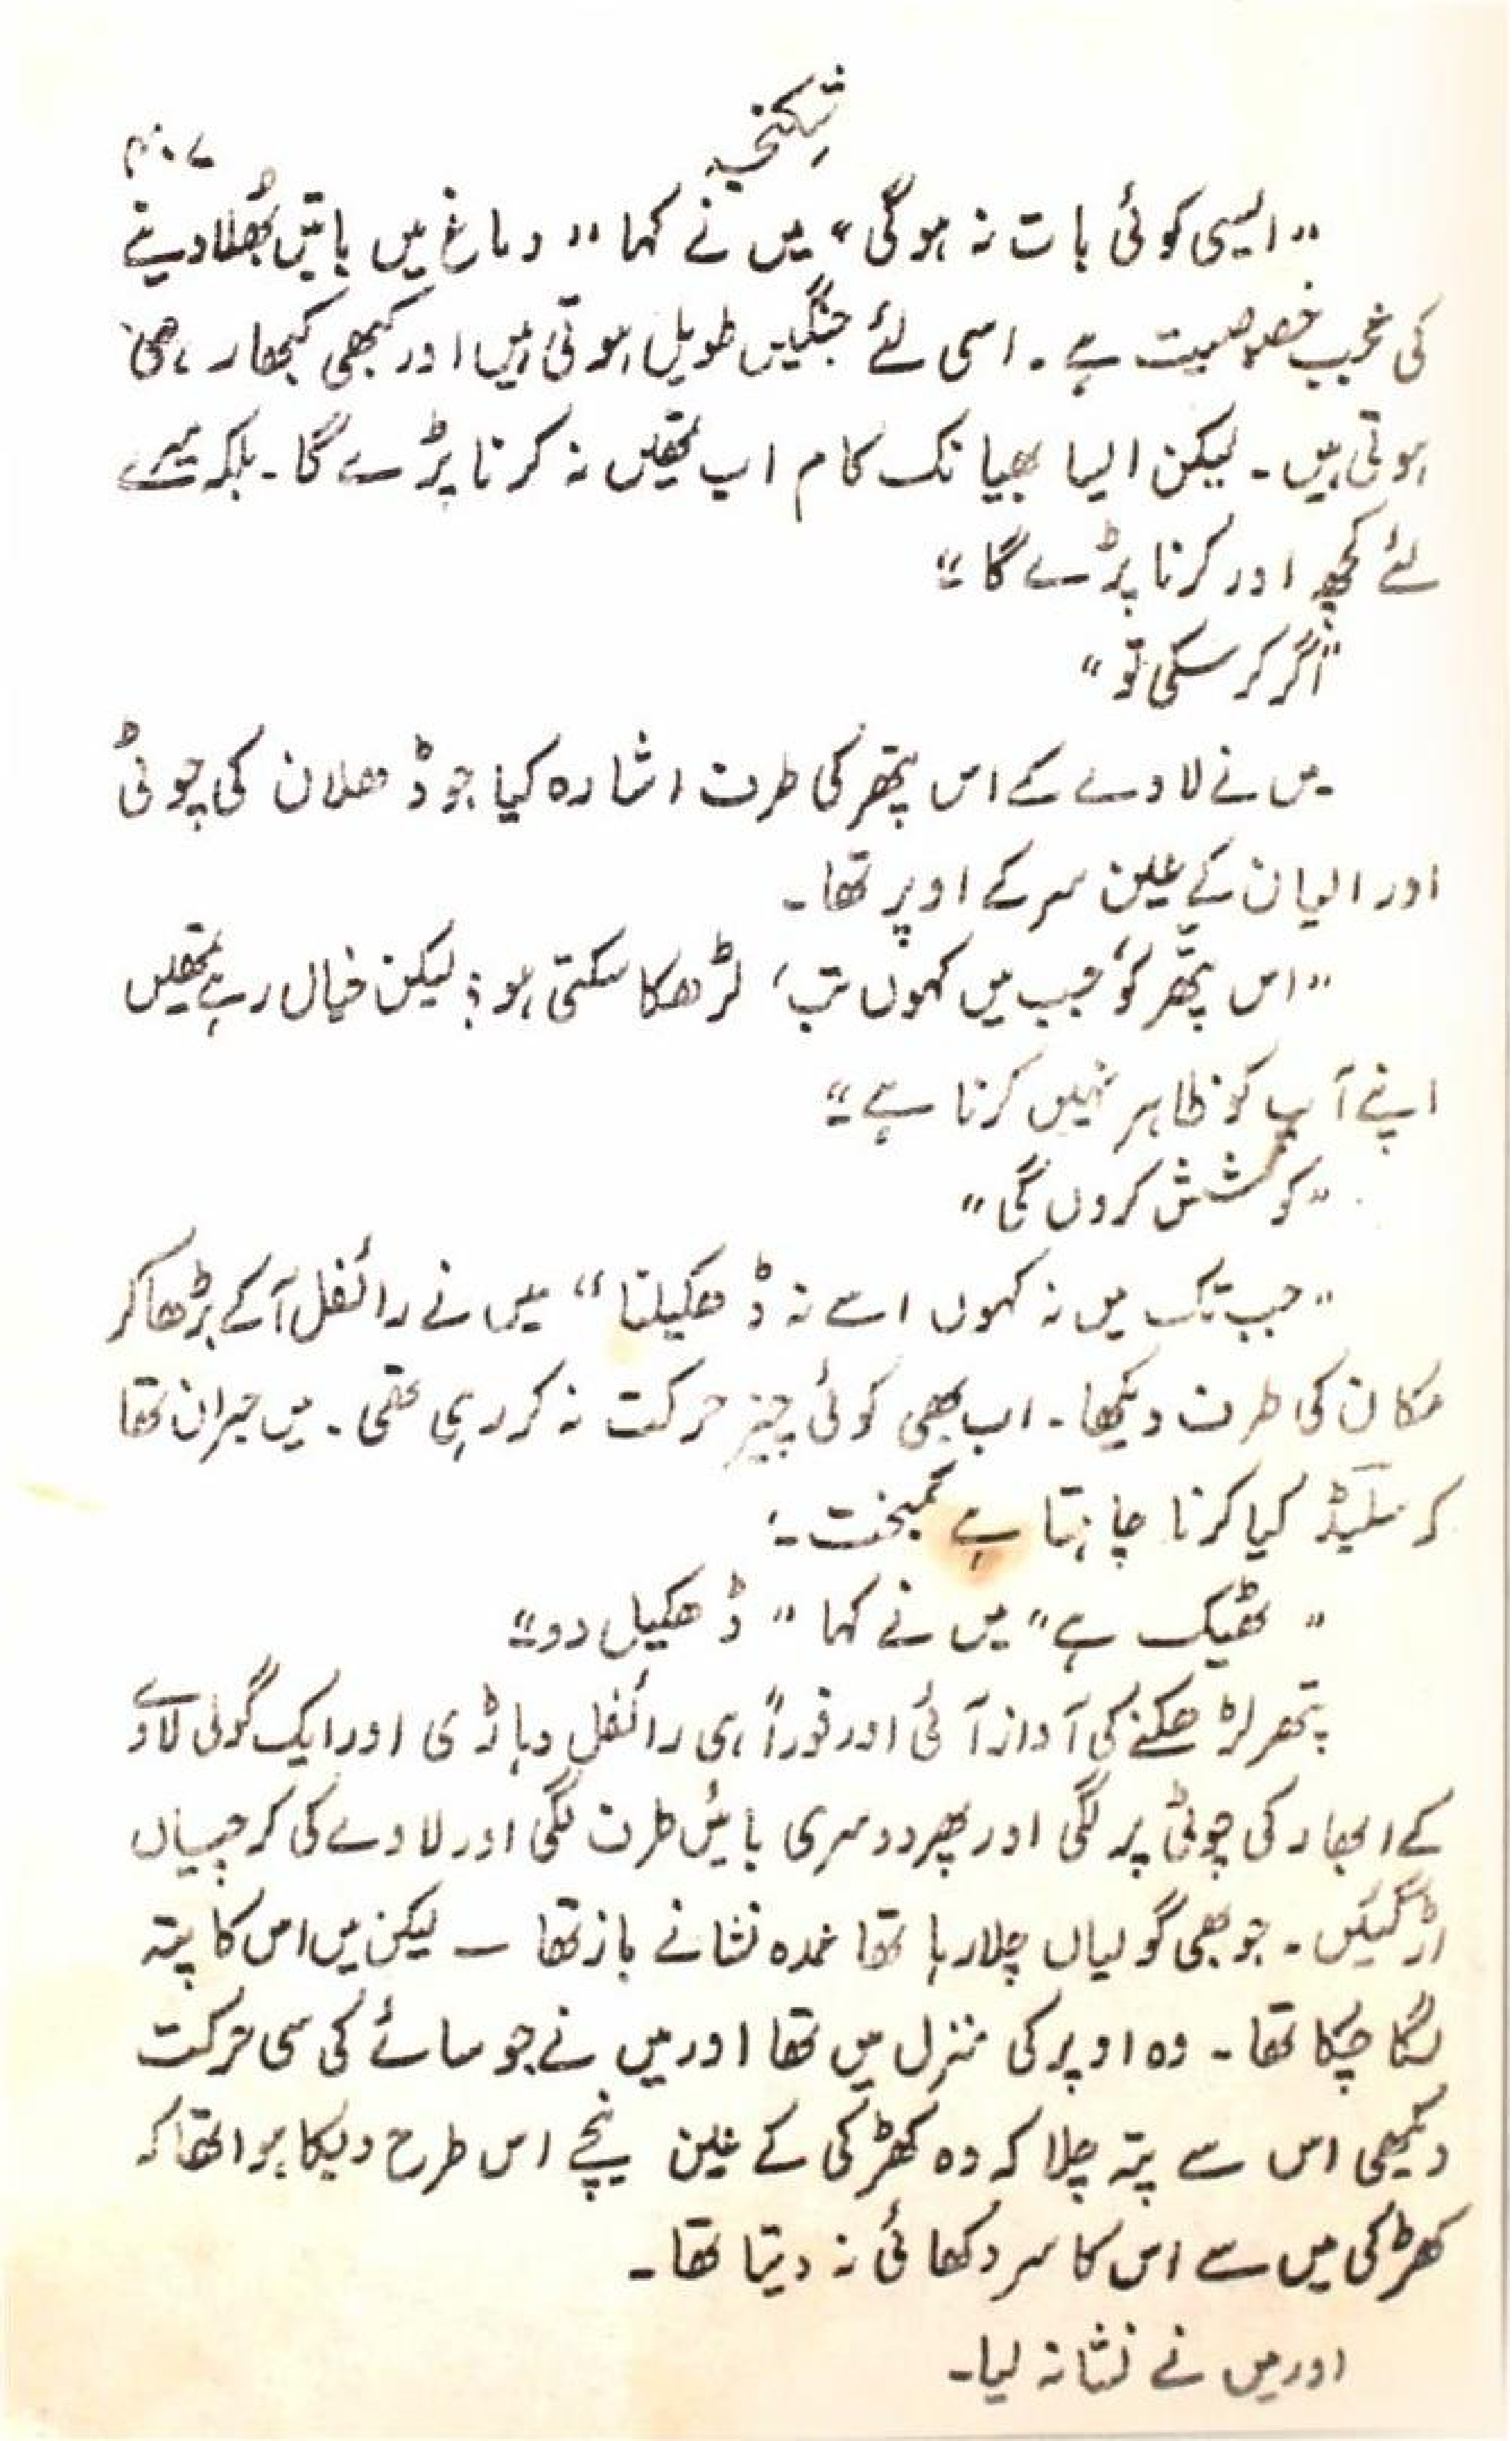 شکنجہ
۴۰۷
"ایسی کوئی بات نہ ہوگی" میں نے کہا "دماغ میں باتیں بھُلا دینے
کی عجیب خصوصیت ہے۔ اسی لئے جنگیں طویل ہوتی ہیں اور کبھی کبھار ہی
ہوتی ہیں۔ لیکن ایسا بھیانک کام اب تمھیں نہ کرنا پڑے گا۔ بلکہ میرے
لئے کچھ اور کرنا پڑے گا۔"
"اگر کر سکی تو"
میں نے لاوے کے اس پتھر کی طرف اشارہ کیا جو ڈھلان کی چوٹی
اور الیان کے عین سر کے اوپر تھا۔
"اس پتھر کو، جب میں کہوں تب، لڑھکا سکتی ہو؟ لیکن خیال رہے تمھیں
اپنے آپ کو ظاہر نہیں کرنا ہے۔"
"کوشش کروں گی"
"جب تک میں نہ کہوں اسے نہ ڈھکیلنا" میں نے رائفل آگے بڑھا کر
مکان کی طرف دیکھا۔ اب بھی کوئی چیز حرکت نہ کر رہی تھی۔ میں حیران تھا
کہ سلیڈ کیا کرنا چاہتا ہے کمبخت۔
"ٹھیک ہے" میں نے کہا "ڈھکیل دو۔"
پتھر لڑھکنے کی آواز آئی اور فوراً ہی رائفل دہاڑی اور ایک گولی لاوے
کے ابھار کی چوٹی پر لگی اور پھر دوسری بائیں طرف لگی اور لاوے کی کرچیاں
اڑ گئیں۔ جو بھی گولیاں چلا رہا تھا عمدہ نشانے باز تھا — لیکن میں اس کا پتہ
لگا چکا تھا۔ وہ اوپر کی منزل میں تھا اور میں نے جو سائے کی سی حرکت
دیکھی اس سے پتہ چلا کہ وہ کھڑکی کے عین نیچے اس طرح دبکا ہوا تھا کہ
کھڑکی میں سے اس کا سر دکھائی نہ دیتا تھا۔
اور میں نے نشانہ لیا۔